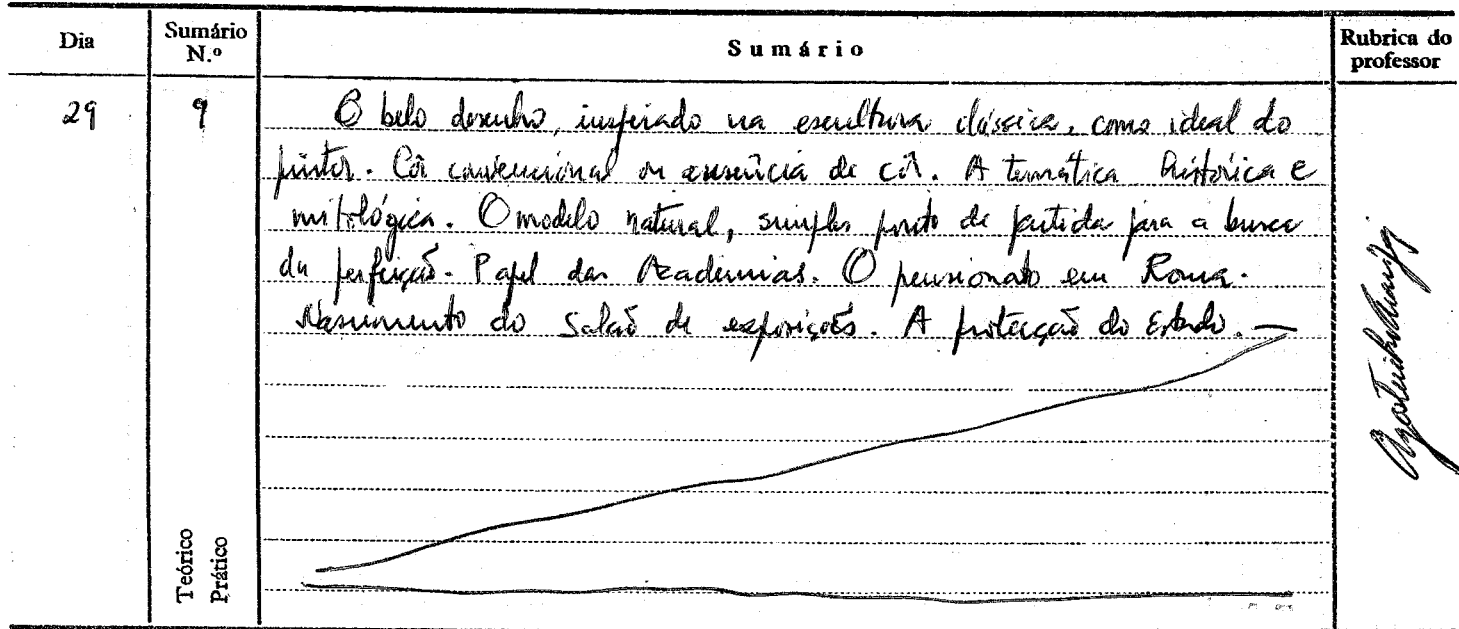 Dia
Sumário N.º
Sumário
Rubrica do professor
29
9
O belo desenho, inspirado na escultura clássica, como ideal do
pintor. Côr convencional ou ausência de côr. A temática histórica e
mitológica. O modelo natural, simples ponto de partida para a busca
da perfeição. Papel das Academias. O pensionato em Roma.
Nascimento do Salão de exposições. A protecção do Estado. —
Teórico
Prático